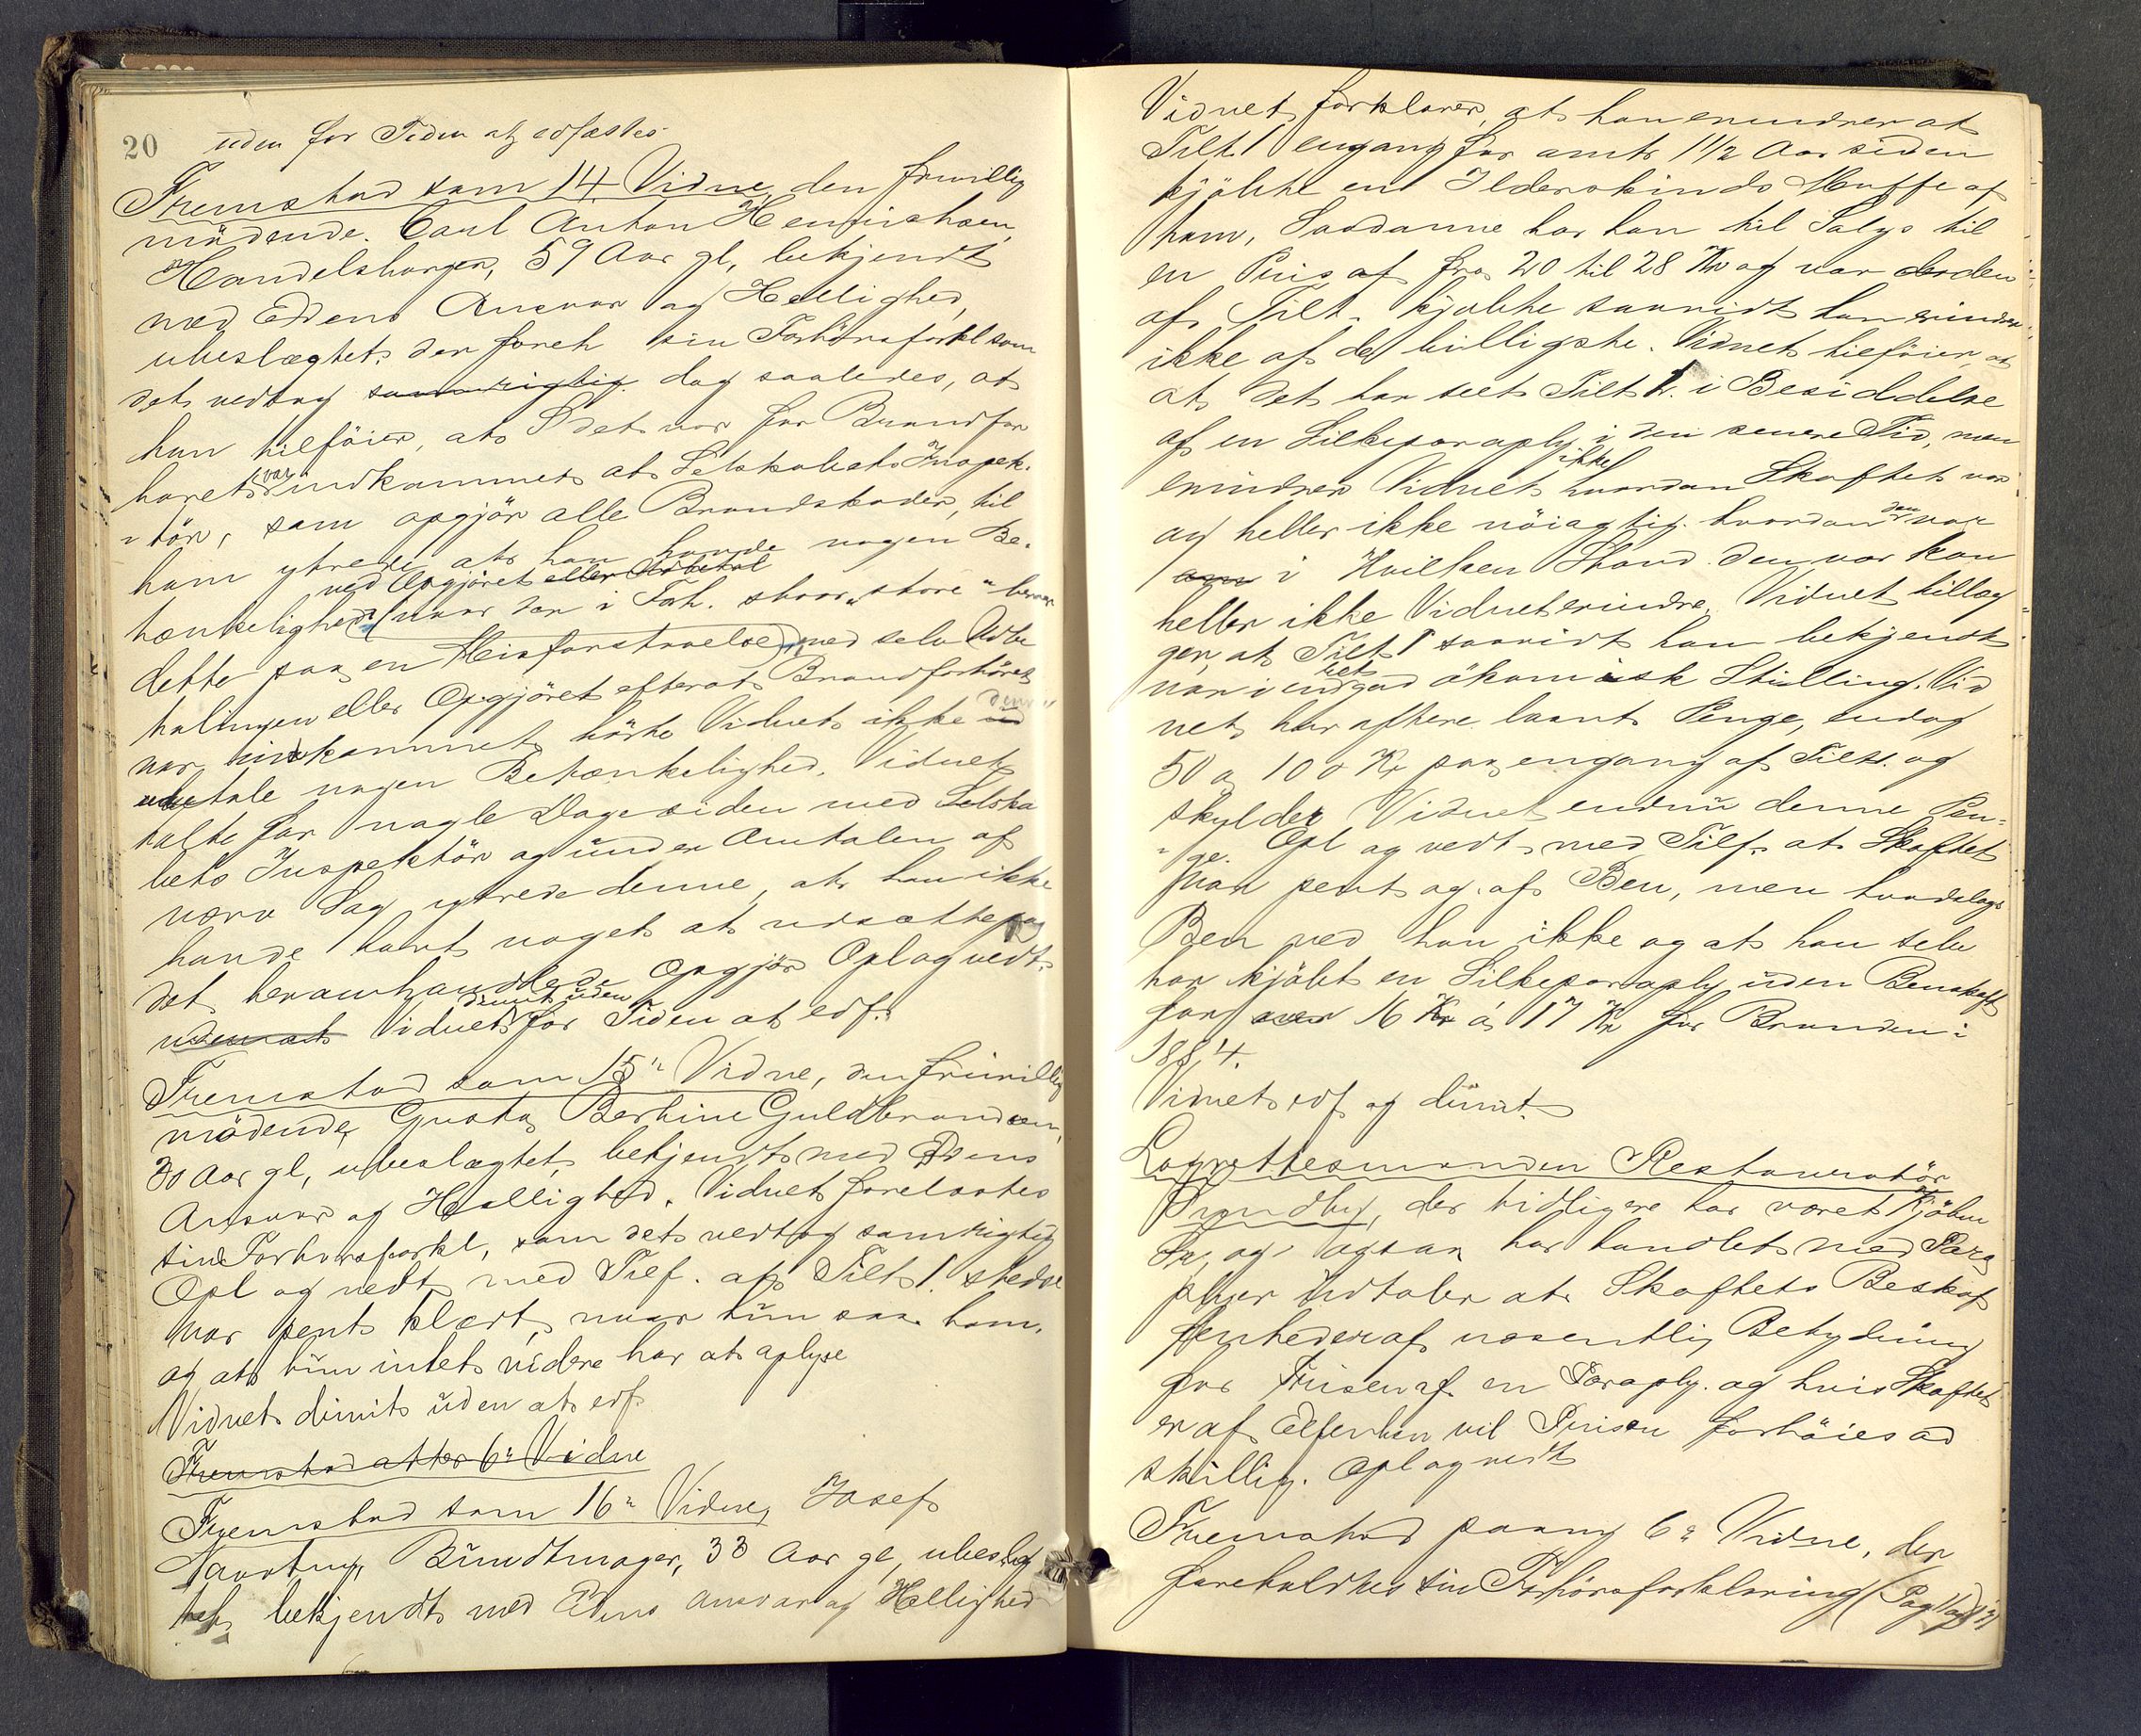 20 uden for Tiden at edfæstes
Fremstod som 14. Vidne, den frivillig
mödende. Carl Anton Henrichsen,
Handelsborger, 59 Aar gl, bekjendt
med Edens Ansvar og Hellighed,
ubeslægtet. der foreh sin Forhörsforkl som
det vedtog samvrigtig dog saaledes, at
han tilföier, at det var för Brandfor
höret var indkommet at Selskabets Inspek-
tör, som opgjör alle Brandskader, til
ham ytrede at han havde nogen Be-
ved Opgjöret eller Udbetal
tænkelighed (naar der i Forh. staar "store" beror
dette paa en Misforstaaelse) med selv Udbe
talingen eller Opgjöret efterat Brandforhöret
var indkommet hörte Vidnet ikke denne
udtale nogen Betænkelighed. Vidnet
talte for nogle Dage siden med Selska
bets Inspektör og under Omtalen af
nærv Sag ytrede denne, at han ikke
havde havt noget at udsætte paa
det heromhandlede Opgjör Opl og vedt.
uden at Vidnet dimit uden for Tiden at edf.
Fremstod som 15de Vidne, den frivillig
mödende Gusta Bertine Guldbrandsen,
30 Aar gl, ubeslægtet, bekjendt med Edens
Ansvar og Hellighed. Vidnet forelæstes
sin Forhörsforkl, som det vedtog samrigtig
Opl og vedt med Tilf. at Tilt 1. stedse
var pent klædt, naar hun saa ham.
og at hun intet videre har at oplyse
Vidnet dimit uden at edf.
Fremstod atter 6te Vidne
Fremstod som 16de Vidne, Josef
Bundtmager, 33 Aar gl, ubeslæg
tet, bekjendt med Edens Ansvar og Hellighed
Vidnet forklarer, at han erindrer at
Tilt 1 engang for omtr 1 1/2 Aar siden
kjöbte en Ilderskinds Muffe af
ham, Saadanne har han til Salgs til
en Pris af fra 20 til 28 Kr og var den
af Tilt. kjöbte saavidt han erindrer
ikke af de billigste. Vidnet tilföier, at
at det har seet Tilt 1. i Besiddelse
af en Silkeparaply i den senere Tid, men
erindrer Vidnet ikke hvordan Skaftet var
og heller ikke nöiagtig hvordan den var
om i Hvilken Stand den var kan
heller ikke Vidnet erindre. Vidnet tillæg
ger, at Tilt 1 saavidt ham bekjendt
var i en ret god ökonomisk Stilling. Vid
net har oftere laant Penge, endog
50 a 100 Kr paa engang af Tilt. og
skylder Vidnet endnu denne Pen-
ge. Opl og vedt med Tilf. at Skaftet
var pent og af Ben, men hvadslags
Ben ved han ikke og at han selv
har kjöbt en Silkeparaply uden Benskaft
for 16 Kr á 17 Kr för Branden i
1884.
Vidnet edf og dimit.
Lagrettesmanden Restauratör
Sundby, der tidligere har været Kjöbm
og ogsaa har handlet med Para
plyer Udtaler at Skaftets Beskaf
fenhed er af væsentlig Betydning
for Prisen af en Paraply og hvis Skaftet
er af Elfenben vil Prisen forhöies ad
skillig. Opl og vedt
Fremstod paany 6te Vidne, der
foreholdtes sin Forhörsforklaring (Pag 11 og 12)